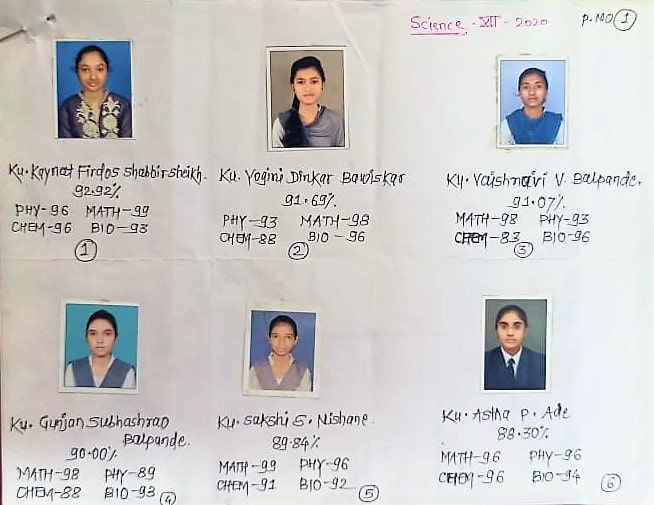 Science - XII - 2020
P.NO 1
Ku. Kaynat Firdos Shabbir Sheikh.
92.92%
PHY-96 MATH-99
CHEM-96 BIO-93
1
Ku. Yogini Dinkar Baviskar
91.69%
PHY-93 MATH-98
CHEM-88 BIO-96
2
Ku. Vaishnavi V Balpande.
91.07%
MATH-98 PHY-93
CHEM-83 BIO-96
3
Ku. Gunjan Subhashrao
Balpande.
90.00%
MATH-98 PHY-89
CHEM-88 BIO-93
4
Ku. Sakshi S. Nishane.
89.84%
MATH-99 PHY-96
CHEM-91 BIO-92
5
Ku. Astha P. Ade
88.30%
MATH-96 PHY-96
CHEM-96 BIO-94
6